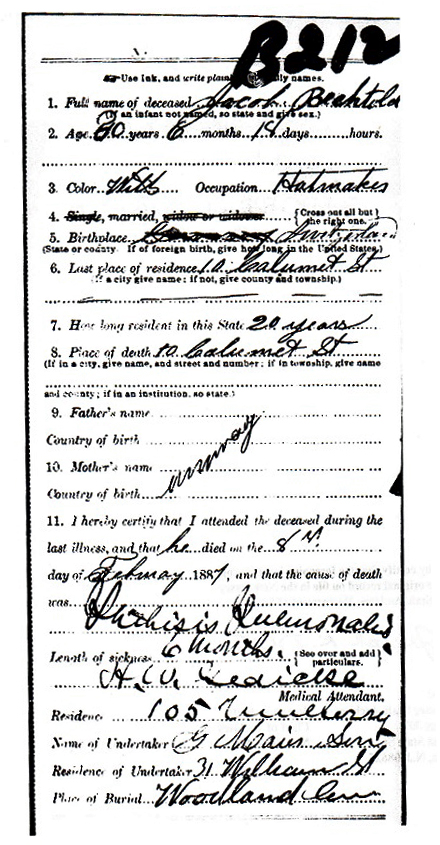 B212
N
Use Ink, and write plain names.
1. Full name of deceased Jacob Bechtold
(If an infant not named, so state and give sex.)
2. Age 50 years 6 months 18 days hours.
3. Color Occupation Hatmaker
4. Single, married, widow or widower {Cross out all but the right one.}
5. Birthplace Germany
(State or county. If of foreign birth, give how long in the United States.)
6. Last place of residence 10 Calumet St
(If a city give name; if not, give county and township.)
7. How long resident in this State 20 years
8. Place of death 10 Calumet St
(If in a city, give name, and street and number; if in township, give name
and county; if in an institution, so state.)
9. Father's name
Country of birth
10. Mother's name
Country of birth
11. I hereby certify that I attended the deceased during the
last illness, and that he died on the 8
day of 1887, and that the cause of death
was
Phthisis Pulmonalis
Length of sickness 6 Months. {See over and add particulars.}
H. W.
Medical Attendant.
Residence 105 Mulberry
Name of Undertaker
Residence of Undertaker 31 William St
Place of Burial Woodland Cem